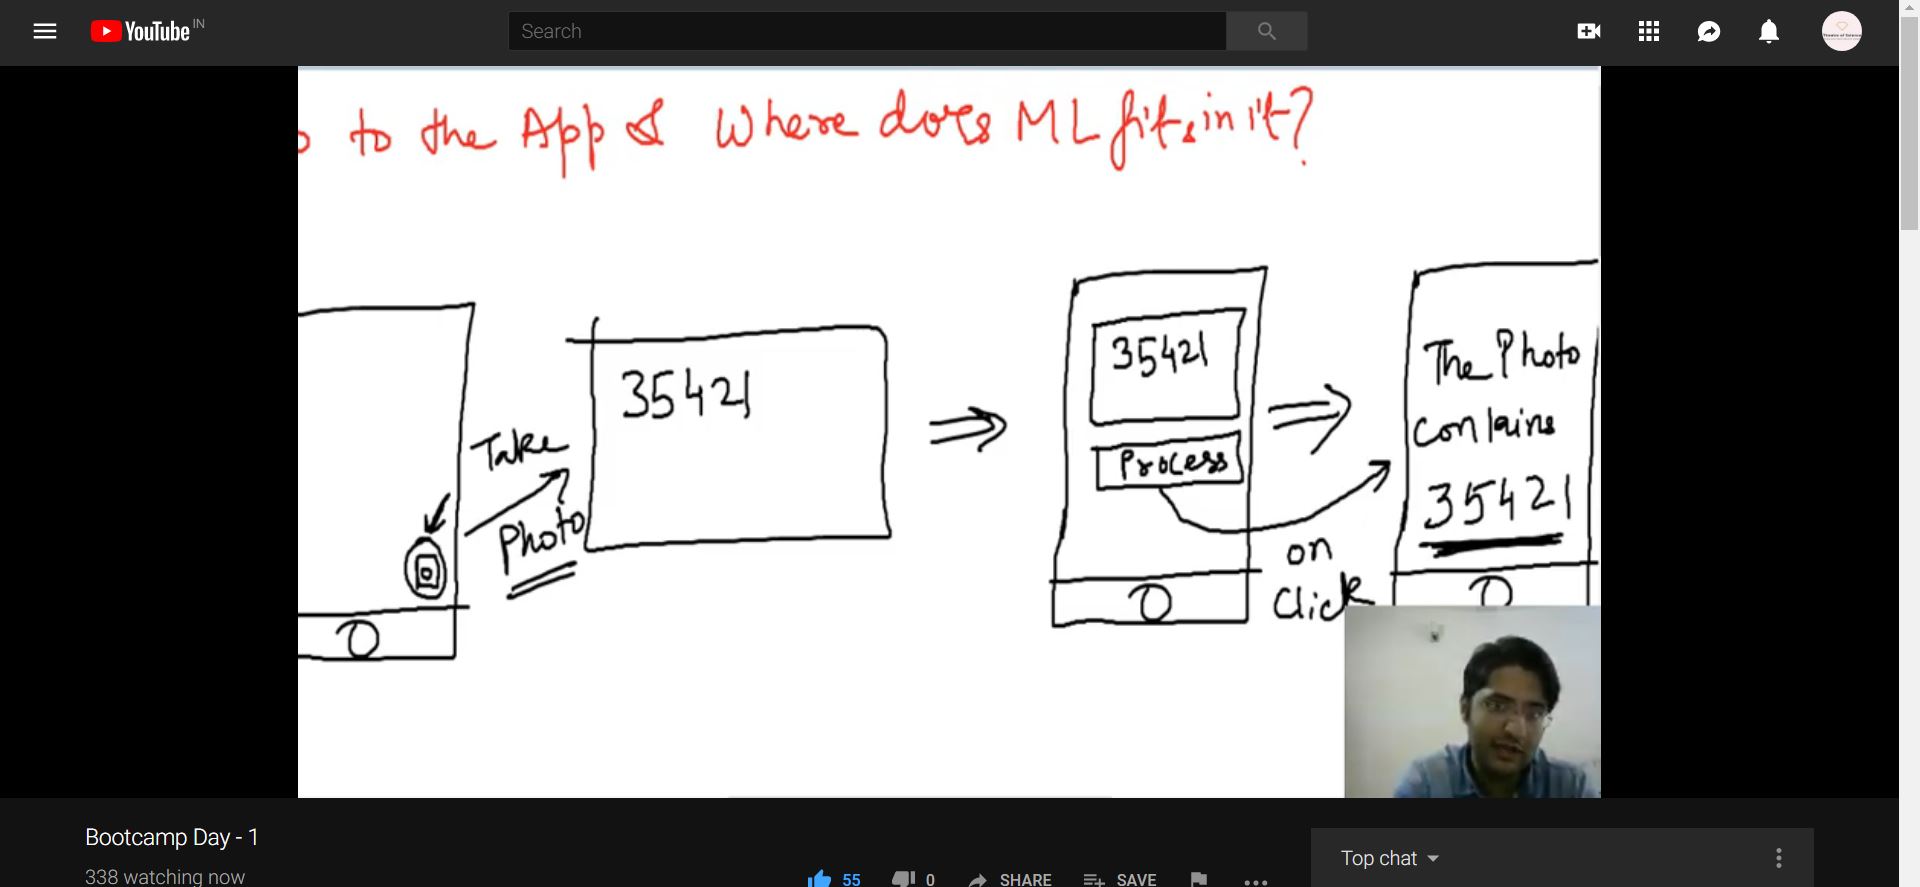 YouTube IN
Search
o to the App & Where does ML fits in it?
35421
Take
Photo
35421
Process
on
Click
The Photo
contains
35421
Bootcamp Day - 1
338 watching now
55
0
SHARE
SAVE
Top chat